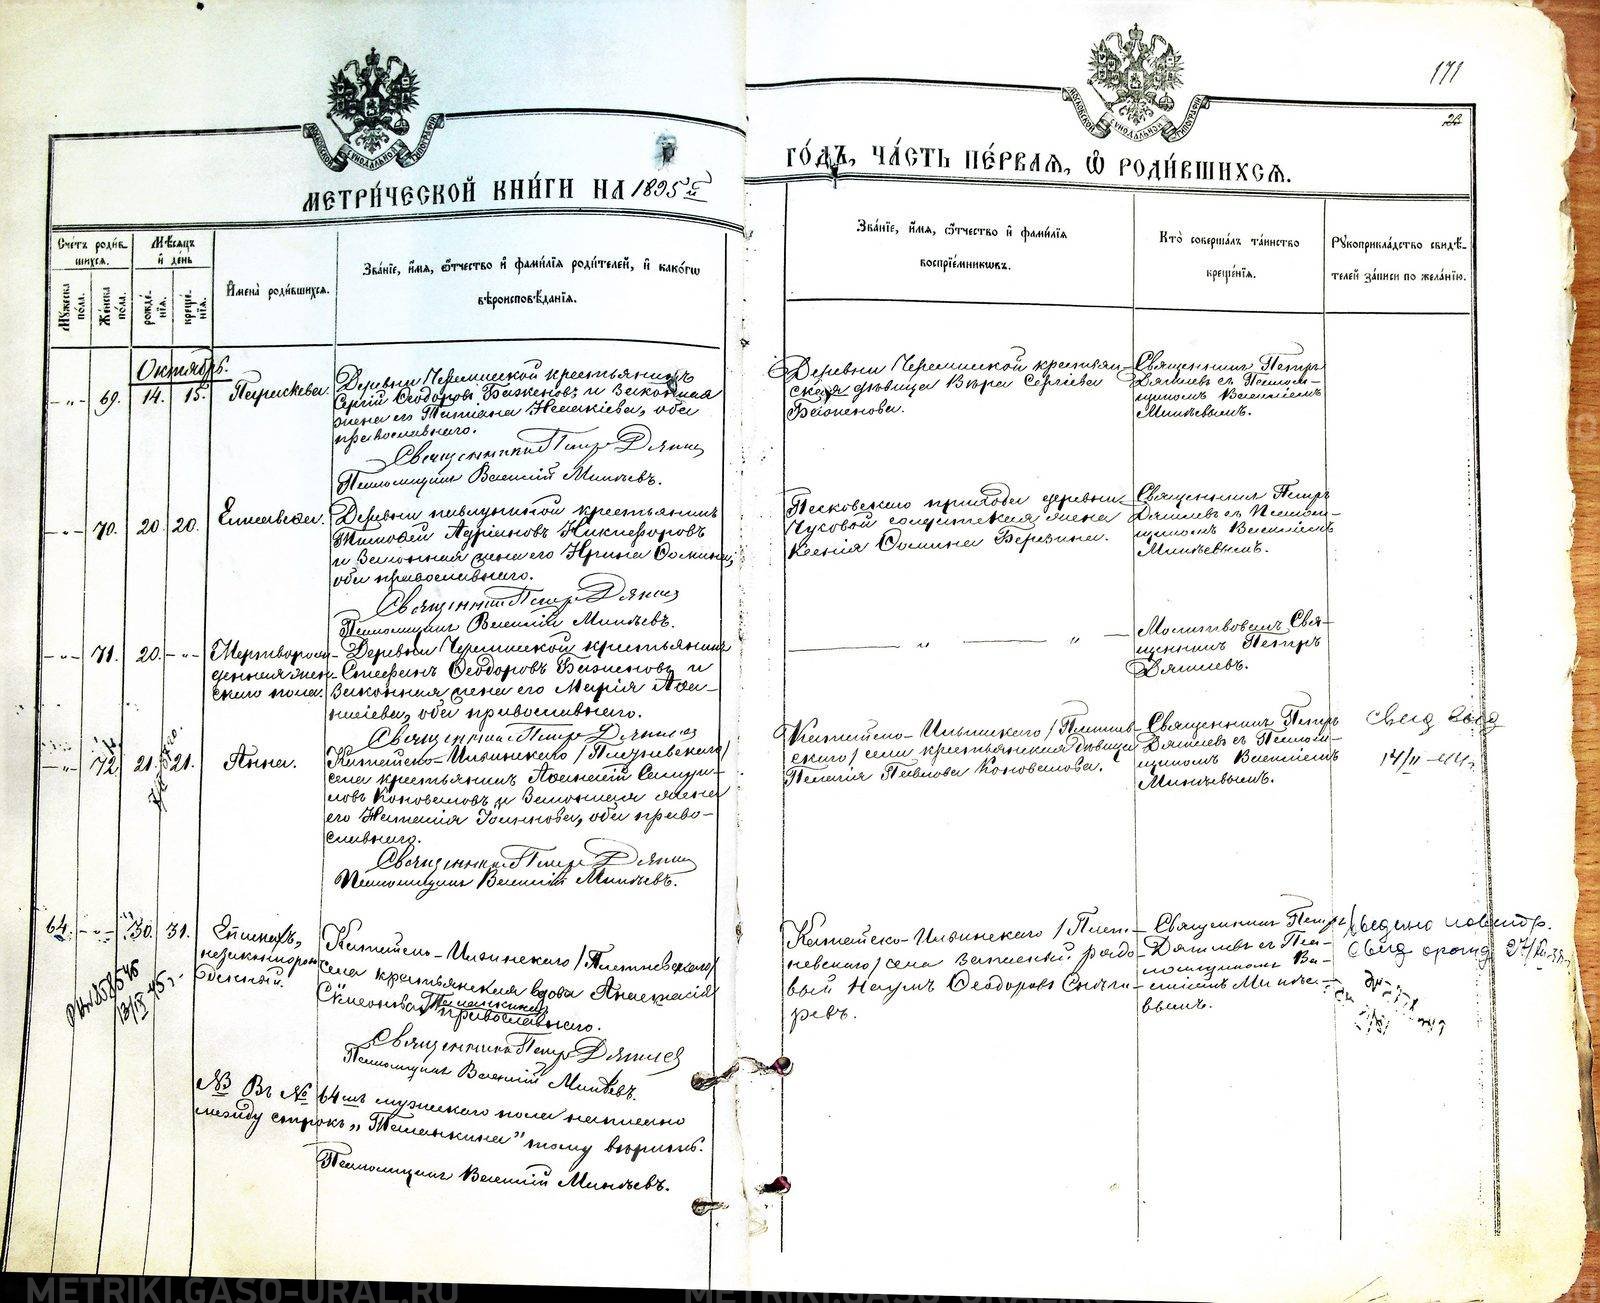 171
МЕТРИЧЕСКОЙ КНИГИ НА 1895й
ГОДЪ, ЧАСТЬ ПЕРВАЯ, Ѡ РОДИВШИХСЯ.
Счетъ родившихся.
Мѣсяцъ и день
Мужеска пола.
Женска пола.
рожденія.
крещенія.
Имена родившихся.
Званіе, имя, отчество и фамилія родителей, и какогѡ
вѣроисповѣданія.
Званіе, имя, отчество и фамилія
воспріемниковъ.
Кто совершалъ таинство
крещенія.
Рукоприкладство свидѣ-
телей записи по желанію.
Октябрь.
69. 14. 15. Параскева.
Деревни Черемисской крестьянинъ
Сергій Ѳеодоровъ Баженовъ, и законная
жена его Татіана, оба
православнаго.
Священникъ Петръ Дягилев
Псаломщикъ Василій Минѣевъ.
Деревни Черемисской крестьян-
ская дѣвица Вѣра Сергіева
Баженова.
Священникъ Петръ
Дягилевъ съ Псалом-
щикомъ Василіемъ
Минѣевымъ.
70. 20. 20. Елисавета.
Деревни крестьянинъ
Тимофей Адріановъ Никифоровъ
и законная жена его Ирина Ѳомина,
оба православнаго.
Священникъ Петръ Дягилев
Псаломщикъ Василій Минѣевъ.
Песковскаго прихода деревни
Чуковой солдатская жена
Ксенія Ѳомина Березина.
Священникъ Петръ
Дягилевъ съ Псалом-
щикомъ Василіемъ
Минѣевымъ.
71. 20. Мертворож-
денная жен-
скаго пола.
Деревни Черемисской крестьянинъ
Стефанъ Ѳеодоровъ Баженовъ и
законная жена его Марія Аѳа-
насіева, оба православнаго.
Священникъ Петръ Дягилев
Молитвовалъ Свя-
щенникъ Петръ
Дягилевъ.
72. 21. 21. Анна.
Катайско-Ильинскаго /Плетневскаго/
села крестьянинъ Аѳанасій Самуи-
ловъ Коноваловъ и законная жена
его Наталія Іоаннова, оба право-
славнаго.
Священникъ Петръ Дягилев
Псаломщикъ Василій Минѣевъ.
Катайско-Ильинскаго /Плетнев-
скаго/ села крестьянская дѣвица
Пелагія Павлова Коновалова.
Священникъ Петръ
Дягилевъ съ Псалом-
щикомъ Василіемъ
Минѣевымъ.
14/II-44г.
64. 30. 31.
незаконнорож-
денный.
Катайско-Ильинскаго /Плетневскаго/
села крестьянская вдова Анастасія
Симеонова Таланкина
православнаго.
Священникъ Петръ Дягилев
Псаломщикъ Василій Минѣевъ.
Катайско-Ильинскаго /Плет-
невскаго/ села запасный рядо-
вый Наумъ Ѳеодоровъ
Священникъ Петръ
Дягилевъ съ Пса-
ломщикомъ Ва-
силіемъ Минѣе-
вымъ.
NB Въ № 64мъ мужскаго пола написано
между строкъ „Таланкина" тому вѣрить.
Псаломщикъ Василій Минѣевъ.
METRIKI.GASO-URAL.RU